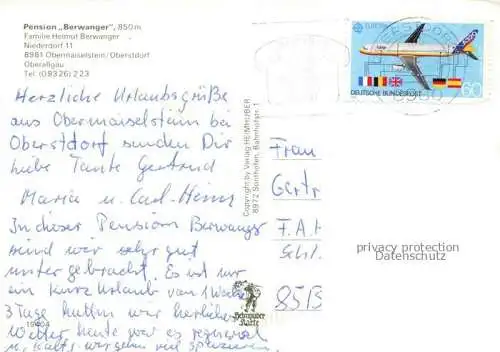 Pension „Berwanger", 850m
Familie Helmut Berwanger
Niederdorf 11
8981 Obermaiselstein/Oberstdorf
Oberallgäu
Tel. (08326) 223
Herzliche Urlaubsgrüße
aus Obermaiselstein bei
Oberstdorf senden Dir
liebe Tante Gertrud
Maria u. Carl-Heinz
In dieser Pension Berwanger
sind wir sehr gut
untergebracht. Es ist nur
ein kurz Urlaub von 1 Woche
3 Tage hatten wir herrliches
Wetter heute war es regnerisch
u. kalt. wir gehen viel spazieren
Copyright by Verlag HEIMHUBER
8972 Sonthofen, Bahnhofstr. 1
Heimhuber
Karte
EUROPA
A320
60
DEUTSCHE BUNDESPOST
8980
Frau
Gertr
F.A.
Schl.
85
privacy protection
Datenschutz